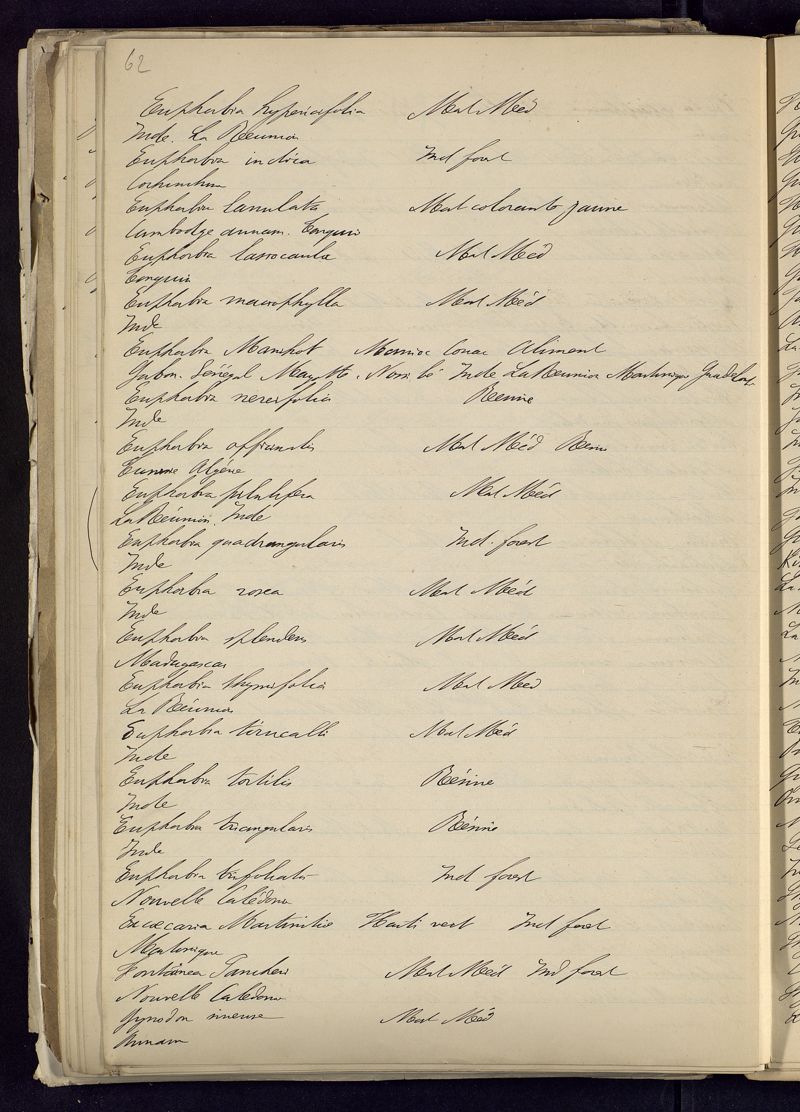 62
Euphorbia hypericifolia Mat Méd
Inde. La Réunion
Euphorbia indica Ind forest
Cochinchine
Euphorbia lanulata Mat colorante jaune
Cambodge annam. Tonquin
Euphorbia Mat Méd
Tonquin
Euphorbia macrophylla Mat Méd
Inde
Euphorbia Manihot Manioc Couac Aliment
Gabon. Sénégal Mayotte. Nossi bé Inde La Réunion Martinique Guadeloupe
Euphorbia nereifolia Resine
Inde
Euphorbia officinalis Mat Méd Resine
Algérie
Euphorbia pilulifera Mat Méd
La Réunion. Inde
Euphorbia quadrangularis Ind. forest
Inde
Euphorbia rosea Mat Méd
Inde
Euphorbia splendens Mat Méd
Madagascar
Euphorbia thymifolia Mat Méd
La Réunion
Euphorbia tirucalli Mat Méd
Inde
Euphorbia tortilis Résine
Inde
Euphorbia triangularis Résine
Inde
Euphorbia trifoliata Ind forest
Nouvelle Calédonie
Excoecaria Martinitie vert Ind forest
Martinique
Fontainea Pancheri Mat Méd Ind forest
Nouvelle Calédonie
Mat Méd
Annam